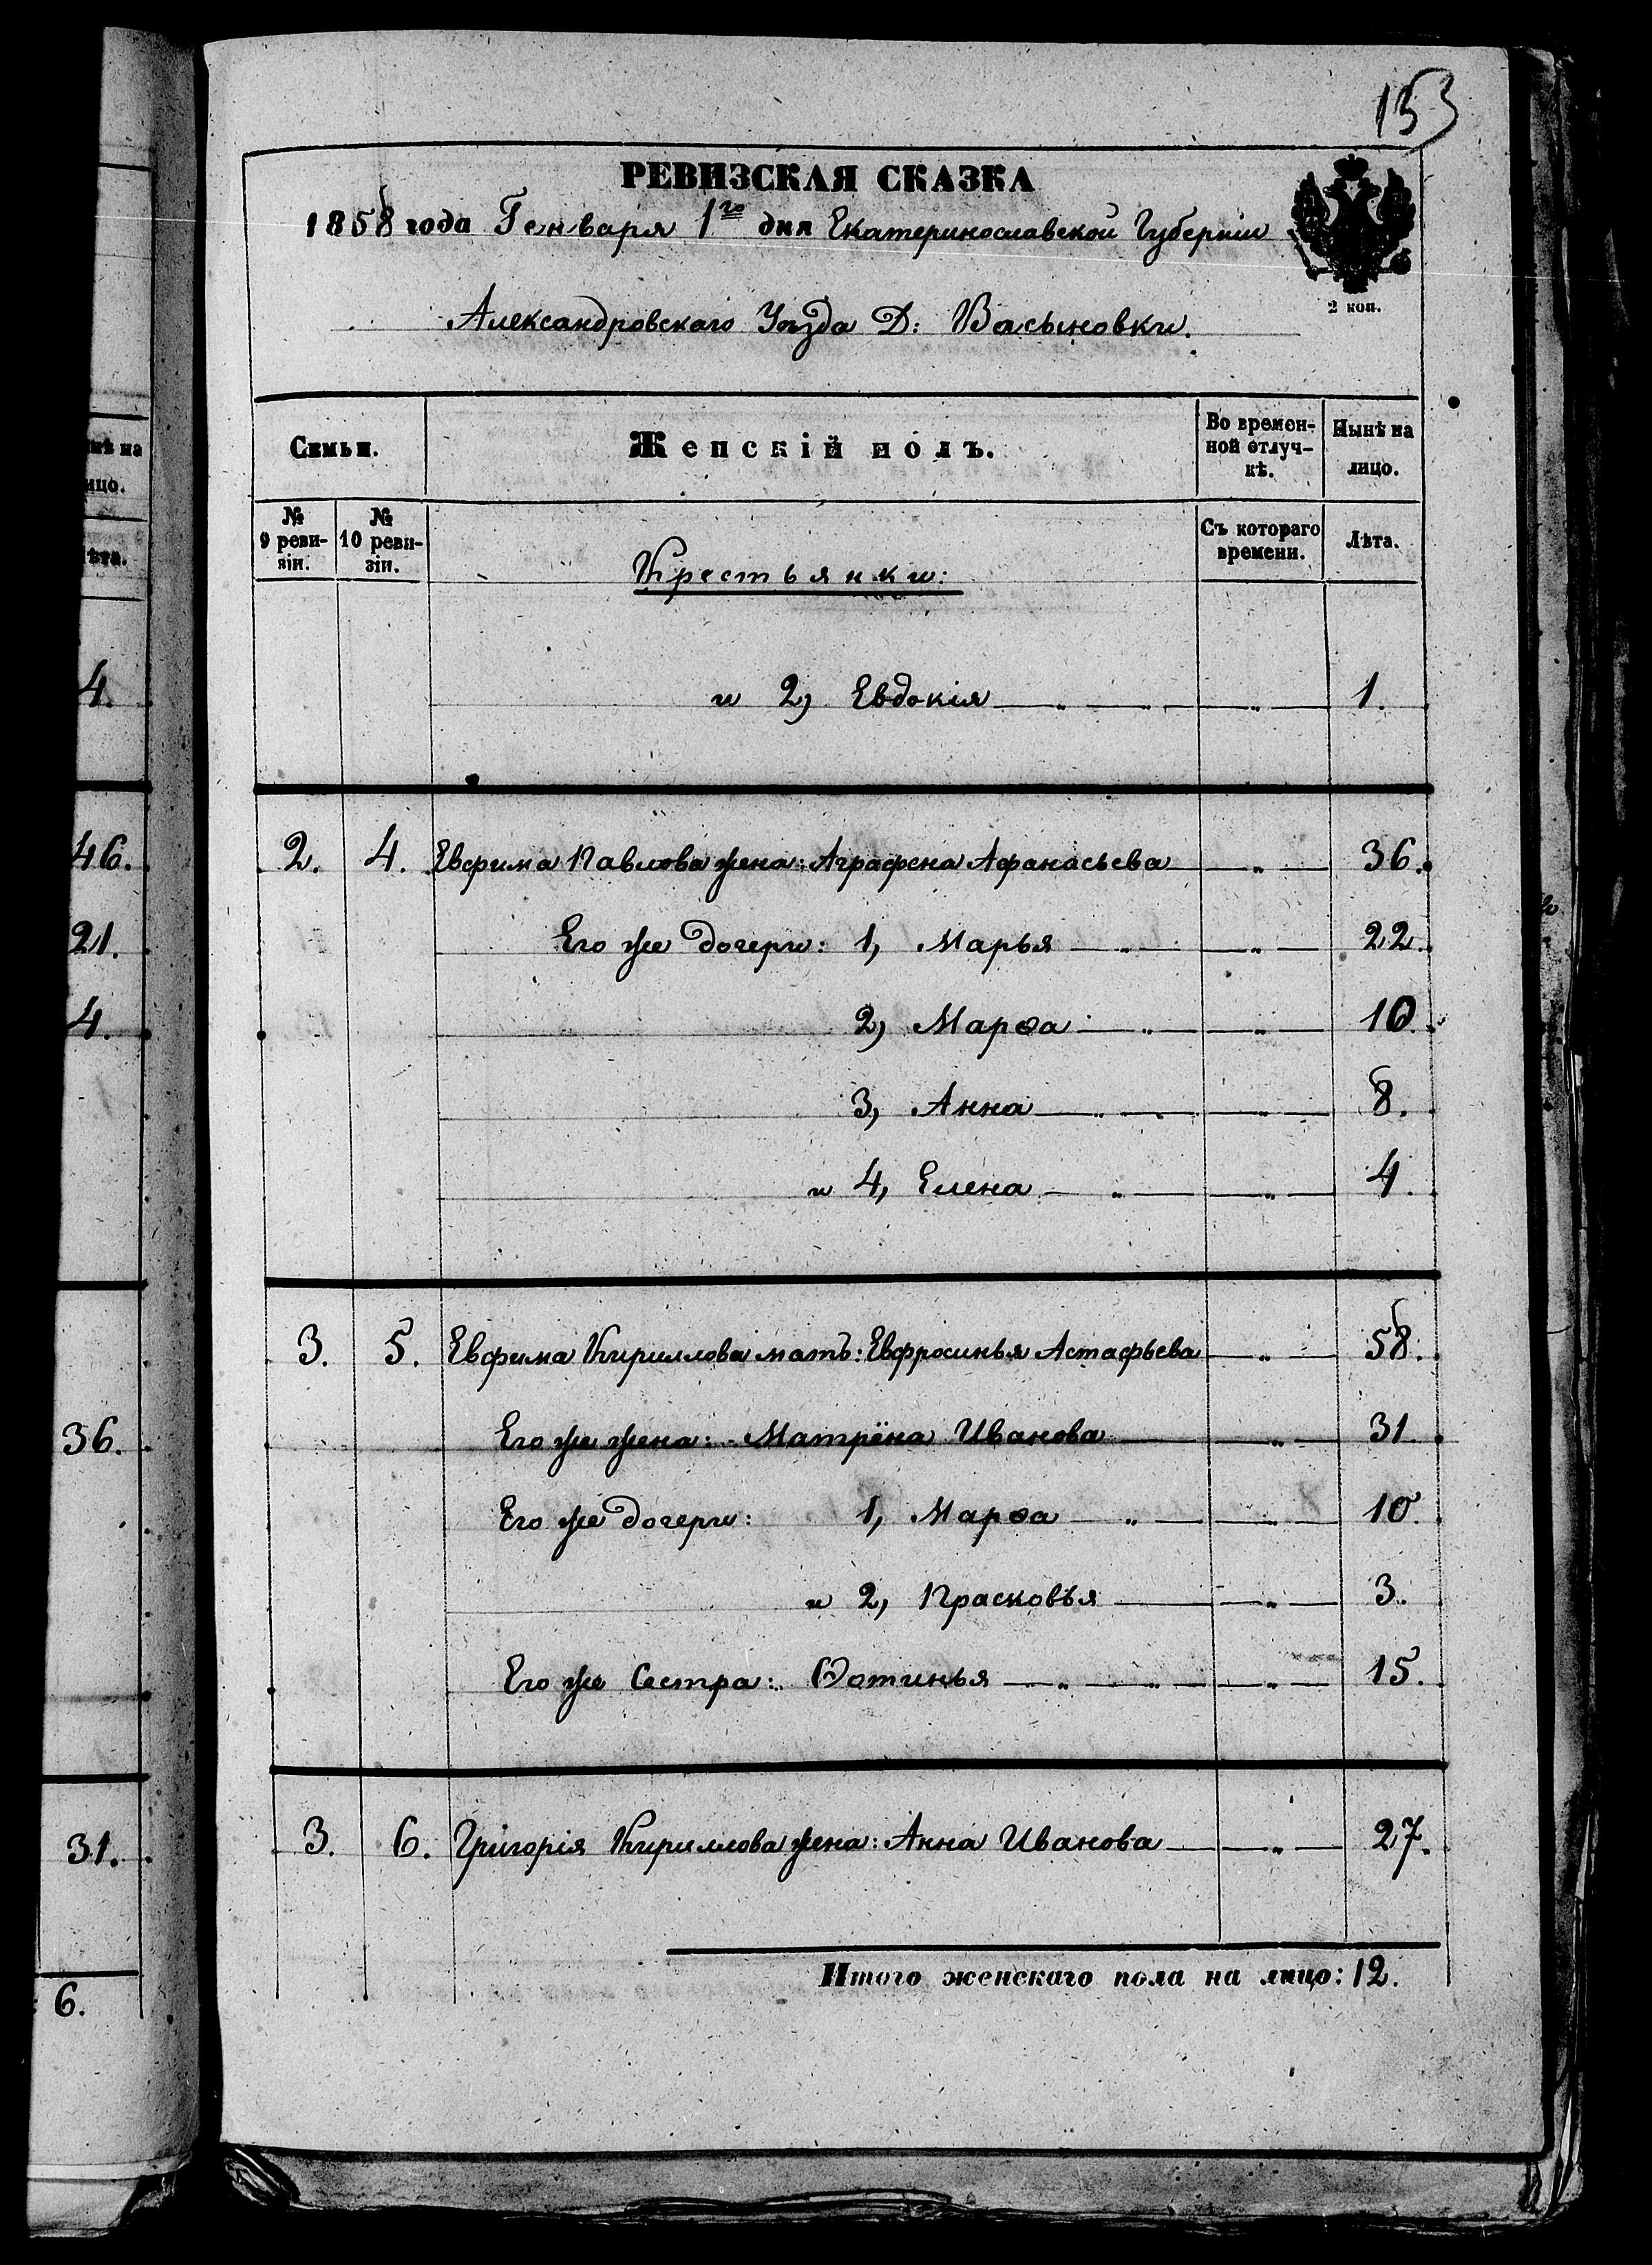 153
РЕВИЗСКАЯ СКАЗКА
1858 года Генваря 1го дня Екатеринославской Губерніи
2 коп.
Александровскаго Уѣзда Д: Васьиновки.
Семьи.
Женскій полъ.
Во времен-
ной отлуч-
кѣ.
Нынѣ на
лицо.
№
9 реви-
зіи.
№
10 реви-
зіи.
Съ котораго
времени.
Лѣта.
Крестьянки:
и 2, Евдокія — „ — „ — „ — 1.
2. 4. Евфима Павлова жена: Аграфена Афанасьева — „ — 36.
Его же дочери: 1, Марья — „ — „ — 22.
2, Марѳа — „ — „ — 10.
3, Анна — „ — „ — „ — 8.
и 4, Елена — „ — „ — 4.
3. 5. Евфима Кириллова мать: Евфросинья Астафьева — „ — 58.
Его же жена: Матрёна Иванова — „ — 31.
Его же дочери: 1, Марѳа — „ — „ — 10.
и 2, Прасковья — „ — 3.
Его же Сестра: Ѳотинья — „ — „ — „ — 15.
3. 6. Григорія Кириллова жена: Анна Иванова — „ — 27.
Итого женскаго пола на лицо: 12.
4.
46.
21.
4.
36.
31.
6.